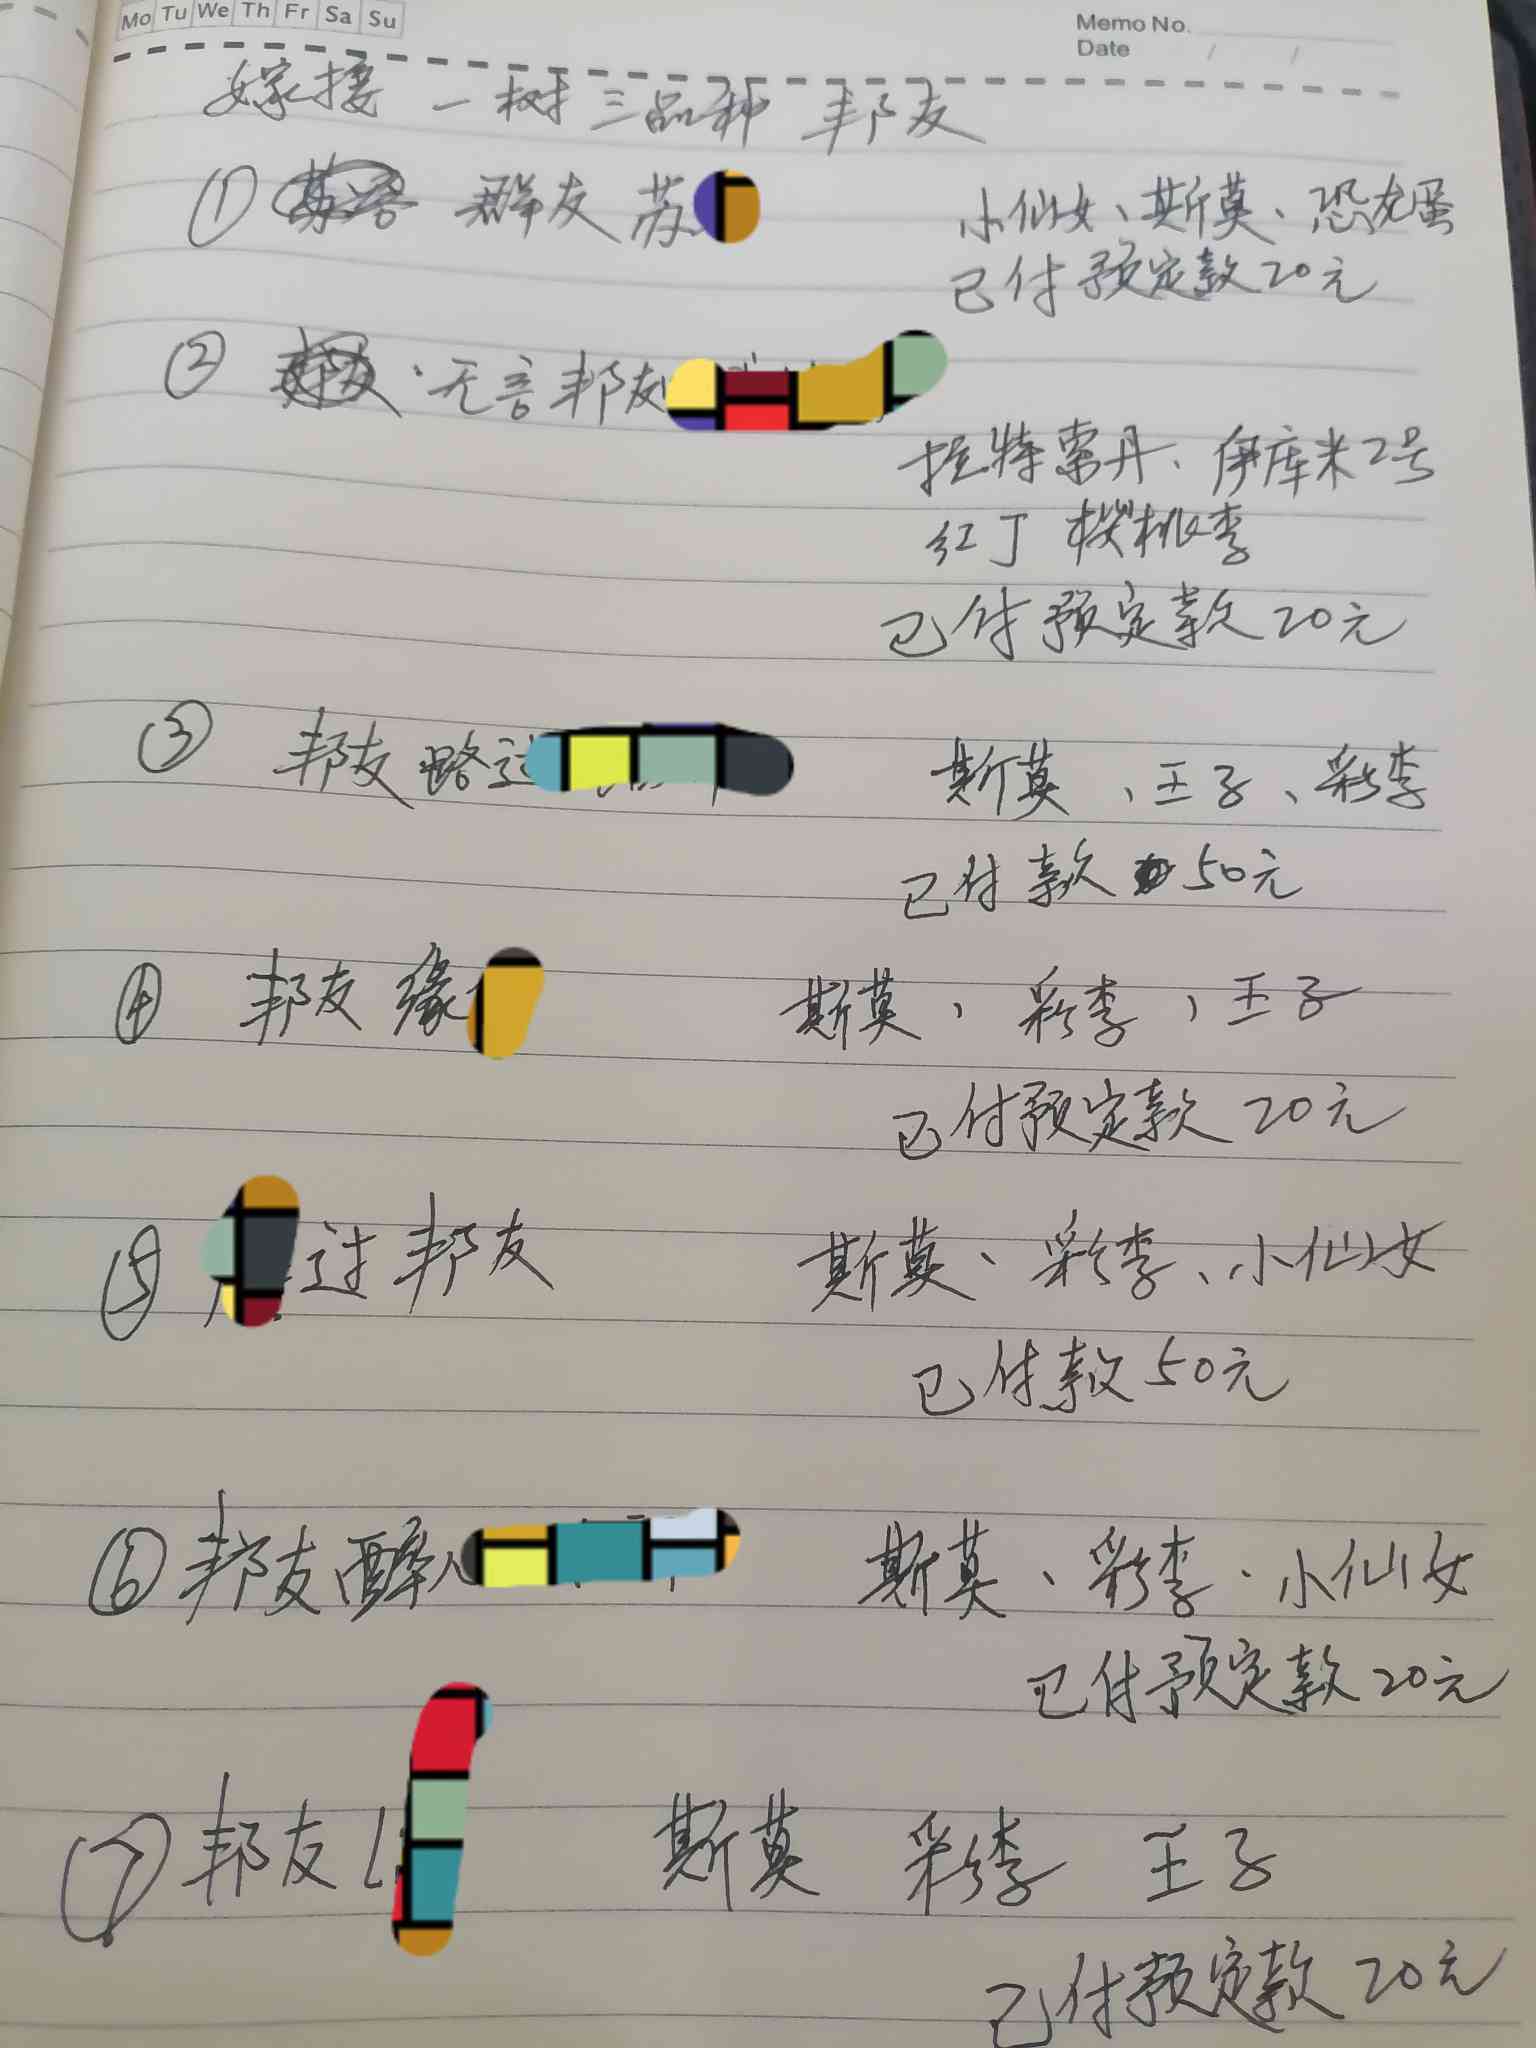 Mo Tu We Th Fr Sa Su
Memo No.
Date / /
嫁接 一树三品种 邦友
① 群友 苏
小仙女、斯莫、恐龙蛋
已付预定款20元
② 无言邦友
拉特索丹、伊库米2号
红丁 樱桃李
已付预定款20元
③ 邦友 略过
斯莫、王子、彩李
已付款 50元
④ 邦友 缘
斯莫、彩李、王子
已付预定款 20元
⑤ 过邦友
斯莫、彩李、小仙女
已付款50元
⑥ 邦友 醉
斯莫、彩李、小仙女
已付预定款20元
⑦ 邦友 L 斯莫 彩李 王子
已付预定款 20元